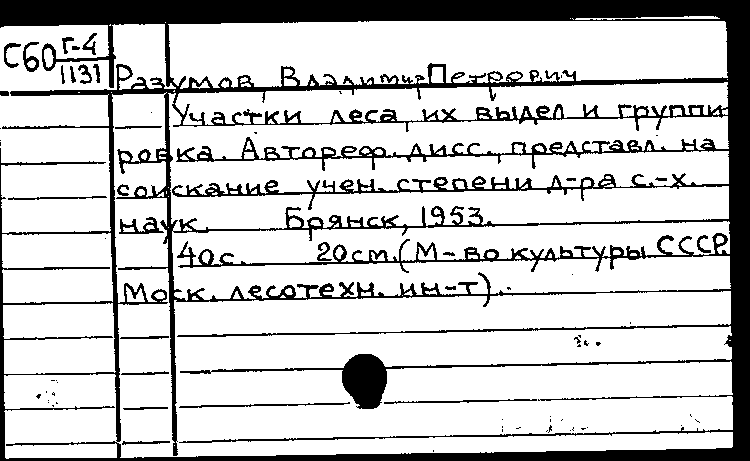 С60 Г-4
1131
Разумов, Владимир Петрович
Участки леса, их выдел и группи
ровка. Автореф. дисс., представл. на
соискание учен. степени д-ра с.-х.
наук. Брянск, 1953.
40с. 20см. (М-во культуры СССР.
Моск. лесотехн. ин-т).